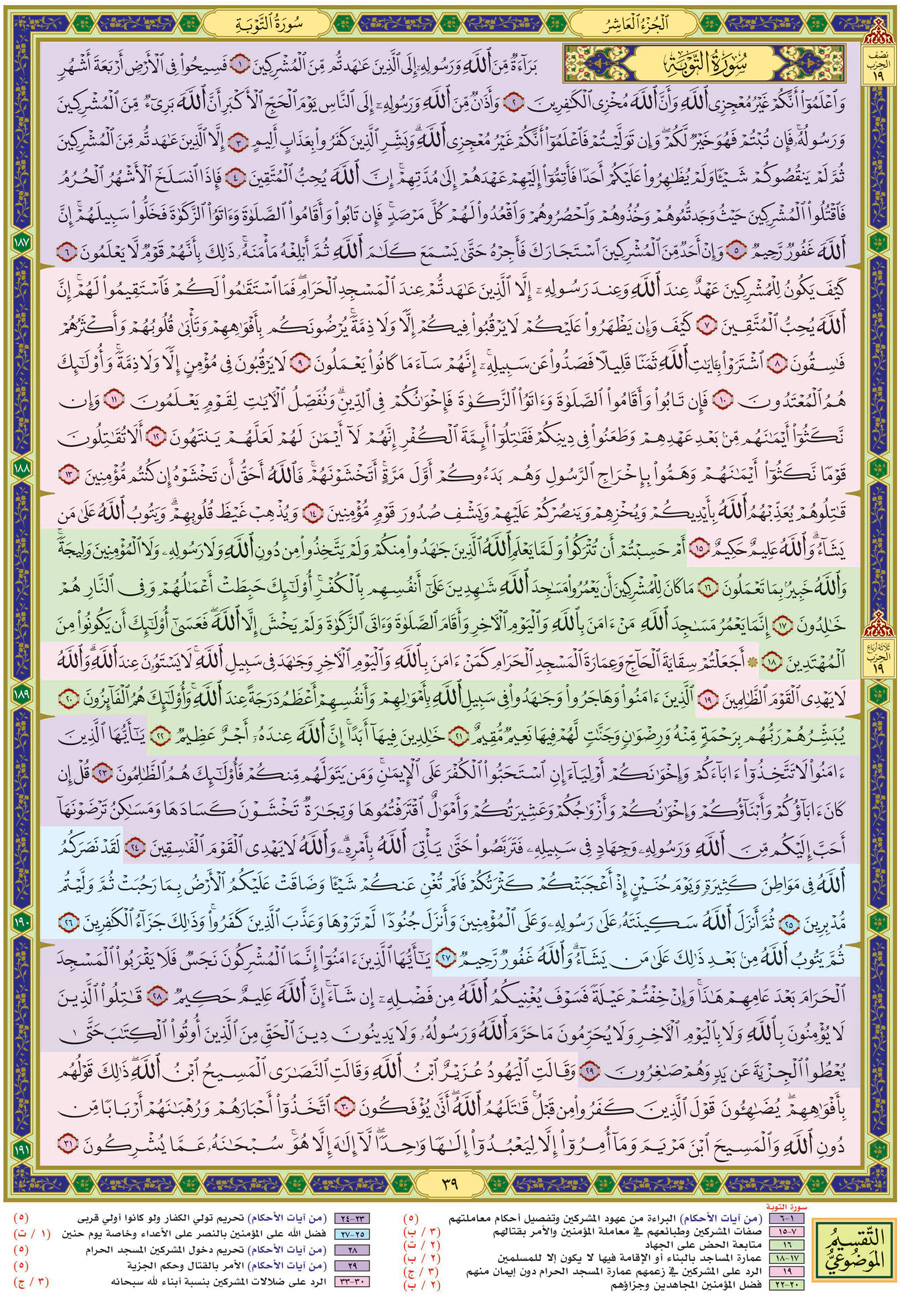 الجُزْءُ العَاشِر
سُورَةُ التَّوْبَةِ
نصف الحزب ١٩
سُورَةُ التَّوْبَةِ
بَرَآءَةٌ مِّنَ ٱللَّهِ وَرَسُولِهِۦٓ إِلَى ٱلَّذِينَ عَٰهَدتُّم مِّنَ ٱلۡمُشۡرِكِينَ ١ فَسِيحُواْ فِي ٱلۡأَرۡضِ أَرۡبَعَةَ أَشۡهُرٖ
وَٱعۡلَمُوٓاْ أَنَّكُمۡ غَيۡرُ مُعۡجِزِي ٱللَّهِ وَأَنَّ ٱللَّهَ مُخۡزِي ٱلۡكَٰفِرِينَ ٢ وَأَذَٰنٞ مِّنَ ٱللَّهِ وَرَسُولِهِۦٓ إِلَى ٱلنَّاسِ يَوۡمَ ٱلۡحَجِّ ٱلۡأَكۡبَرِ أَنَّ ٱللَّهَ بَرِيٓءٞ مِّنَ ٱلۡمُشۡرِكِينَ
وَرَسُولُهُۥۚ فَإِن تُبۡتُمۡ فَهُوَ خَيۡرٞ لَّكُمۡۖ وَإِن تَوَلَّيۡتُمۡ فَٱعۡلَمُوٓاْ أَنَّكُمۡ غَيۡرُ مُعۡجِزِي ٱللَّهِۗ وَبَشِّرِ ٱلَّذِينَ كَفَرُواْ بِعَذَابٍ أَلِيمٍ ٣ إِلَّا ٱلَّذِينَ عَٰهَدتُّم مِّنَ ٱلۡمُشۡرِكِينَ
ثُمَّ لَمۡ يَنقُصُوكُمۡ شَيۡـٔٗا وَلَمۡ يُظَٰهِرُواْ عَلَيۡكُمۡ أَحَدٗا فَأَتِمُّوٓاْ إِلَيۡهِمۡ عَهۡدَهُمۡ إِلَىٰ مُدَّتِهِمۡۚ إِنَّ ٱللَّهَ يُحِبُّ ٱلۡمُتَّقِينَ ٤ فَإِذَا ٱنسَلَخَ ٱلۡأَشۡهُرُ ٱلۡحُرُمُ
فَٱقۡتُلُواْ ٱلۡمُشۡرِكِينَ حَيۡثُ وَجَدتُّمُوهُمۡ وَخُذُوهُمۡ وَٱحۡصُرُوهُمۡ وَٱقۡعُدُواْ لَهُمۡ كُلَّ مَرۡصَدٖۚ فَإِن تَابُواْ وَأَقَامُواْ ٱلصَّلَوٰةَ وَءَاتَوُاْ ٱلزَّكَوٰةَ فَخَلُّواْ سَبِيلَهُمۡۚ إِنَّ
١٨٧
ٱللَّهَ غَفُورٞ رَّحِيمٞ ٥ وَإِنۡ أَحَدٞ مِّنَ ٱلۡمُشۡرِكِينَ ٱسۡتَجَارَكَ فَأَجِرۡهُ حَتَّىٰ يَسۡمَعَ كَلَٰمَ ٱللَّهِ ثُمَّ أَبۡلِغۡهُ مَأۡمَنَهُۥۚ ذَٰلِكَ بِأَنَّهُمۡ قَوۡمٞ لَّا يَعۡلَمُونَ ٦
كَيۡفَ يَكُونُ لِلۡمُشۡرِكِينَ عَهۡدٌ عِندَ ٱللَّهِ وَعِندَ رَسُولِهِۦٓ إِلَّا ٱلَّذِينَ عَٰهَدتُّمۡ عِندَ ٱلۡمَسۡجِدِ ٱلۡحَرَامِۖ فَمَا ٱسۡتَقَٰمُواْ لَكُمۡ فَٱسۡتَقِيمُواْ لَهُمۡۚ إِنَّ
ٱللَّهَ يُحِبُّ ٱلۡمُتَّقِينَ ٧ كَيۡفَ وَإِن يَظۡهَرُواْ عَلَيۡكُمۡ لَا يَرۡقُبُواْ فِيكُمۡ إِلّٗا وَلَا ذِمَّةٗۚ يُرۡضُونَكُم بِأَفۡوَٰهِهِمۡ وَتَأۡبَىٰ قُلُوبُهُمۡ وَأَكۡثَرُهُمۡ
فَٰسِقُونَ ٨ ٱشۡتَرَوۡاْ بِـَٔايَٰتِ ٱللَّهِ ثَمَنٗا قَلِيلٗا فَصَدُّواْ عَن سَبِيلِهِۦٓۚ إِنَّهُمۡ سَآءَ مَا كَانُواْ يَعۡمَلُونَ ٩ لَا يَرۡقُبُونَ فِي مُؤۡمِنٍ إِلّٗا وَلَا ذِمَّةٗۚ وَأُوْلَٰٓئِكَ
هُمُ ٱلۡمُعۡتَدُونَ ١٠ فَإِن تَابُواْ وَأَقَامُواْ ٱلصَّلَوٰةَ وَءَاتَوُاْ ٱلزَّكَوٰةَ فَإِخۡوَٰنُكُمۡ فِي ٱلدِّينِۗ وَنُفَصِّلُ ٱلۡأٓيَٰتِ لِقَوۡمٖ يَعۡلَمُونَ ١١ وَإِن
نَّكَثُوٓاْ أَيۡمَٰنَهُم مِّنۢ بَعۡدِ عَهۡدِهِمۡ وَطَعَنُواْ فِي دِينِكُمۡ فَقَٰتِلُوٓاْ أَئِمَّةَ ٱلۡكُفۡرِ إِنَّهُمۡ لَآ أَيۡمَٰنَ لَهُمۡ لَعَلَّهُمۡ يَنتَهُونَ ١٢ أَلَا تُقَٰتِلُونَ
١٨٨
قَوۡمٗا نَّكَثُوٓاْ أَيۡمَٰنَهُمۡ وَهَمُّواْ بِإِخۡرَاجِ ٱلرَّسُولِ وَهُم بَدَءُوكُمۡ أَوَّلَ مَرَّةٍۚ أَتَخۡشَوۡنَهُمۡۚ فَٱللَّهُ أَحَقُّ أَن تَخۡشَوۡهُ إِن كُنتُم مُّؤۡمِنِينَ ١٣
قَٰتِلُوهُمۡ يُعَذِّبۡهُمُ ٱللَّهُ بِأَيۡدِيكُمۡ وَيُخۡزِهِمۡ وَيَنصُرۡكُمۡ عَلَيۡهِمۡ وَيَشۡفِ صُدُورَ قَوۡمٖ مُّؤۡمِنِينَ ١٤ وَيُذۡهِبۡ غَيۡظَ قُلُوبِهِمۡۗ وَيَتُوبُ ٱللَّهُ عَلَىٰ مَن
يَشَآءُۗ وَٱللَّهُ عَلِيمٌ حَكِيمٌ ١٥ أَمۡ حَسِبۡتُمۡ أَن تُتۡرَكُواْ وَلَمَّا يَعۡلَمِ ٱللَّهُ ٱلَّذِينَ جَٰهَدُواْ مِنكُمۡ وَلَمۡ يَتَّخِذُواْ مِن دُونِ ٱللَّهِ وَلَا رَسُولِهِۦ وَلَا ٱلۡمُؤۡمِنِينَ وَلِيجَةٗۚ
وَٱللَّهُ خَبِيرُۢ بِمَا تَعۡمَلُونَ ١٦ مَا كَانَ لِلۡمُشۡرِكِينَ أَن يَعۡمُرُواْ مَسَٰجِدَ ٱللَّهِ شَٰهِدِينَ عَلَىٰٓ أَنفُسِهِم بِٱلۡكُفۡرِۚ أُوْلَٰٓئِكَ حَبِطَتۡ أَعۡمَٰلُهُمۡ وَفِي ٱلنَّارِ هُمۡ
خَٰلِدُونَ ١٧ إِنَّمَا يَعۡمُرُ مَسَٰجِدَ ٱللَّهِ مَنۡ ءَامَنَ بِٱللَّهِ وَٱلۡيَوۡمِ ٱلۡأٓخِرِ وَأَقَامَ ٱلصَّلَوٰةَ وَءَاتَى ٱلزَّكَوٰةَ وَلَمۡ يَخۡشَ إِلَّا ٱللَّهَۖ فَعَسَىٰٓ أُوْلَٰٓئِكَ أَن يَكُونُواْ مِنَ
ثلاثة أرباع الحزب ١٩
ٱلۡمُهۡتَدِينَ ١٨ ۞ أَجَعَلۡتُمۡ سِقَايَةَ ٱلۡحَآجِّ وَعِمَارَةَ ٱلۡمَسۡجِدِ ٱلۡحَرَامِ كَمَنۡ ءَامَنَ بِٱللَّهِ وَٱلۡيَوۡمِ ٱلۡأٓخِرِ وَجَٰهَدَ فِي سَبِيلِ ٱللَّهِۚ لَا يَسۡتَوُۥنَ عِندَ ٱللَّهِۗ وَٱللَّهُ
١٨٩
لَا يَهۡدِي ٱلۡقَوۡمَ ٱلظَّٰلِمِينَ ١٩ ٱلَّذِينَ ءَامَنُواْ وَهَاجَرُواْ وَجَٰهَدُواْ فِي سَبِيلِ ٱللَّهِ بِأَمۡوَٰلِهِمۡ وَأَنفُسِهِمۡ أَعۡظَمُ دَرَجَةً عِندَ ٱللَّهِۚ وَأُوْلَٰٓئِكَ هُمُ ٱلۡفَآئِزُونَ ٢٠
يُبَشِّرُهُمۡ رَبُّهُم بِرَحۡمَةٖ مِّنۡهُ وَرِضۡوَٰنٖ وَجَنَّٰتٖ لَّهُمۡ فِيهَا نَعِيمٞ مُّقِيمٌ ٢١ خَٰلِدِينَ فِيهَآ أَبَدًاۚ إِنَّ ٱللَّهَ عِندَهُۥٓ أَجۡرٌ عَظِيمٞ ٢٢ يَٰٓأَيُّهَا ٱلَّذِينَ
ءَامَنُواْ لَا تَتَّخِذُوٓاْ ءَابَآءَكُمۡ وَإِخۡوَٰنَكُمۡ أَوۡلِيَآءَ إِنِ ٱسۡتَحَبُّواْ ٱلۡكُفۡرَ عَلَى ٱلۡإِيمَٰنِۚ وَمَن يَتَوَلَّهُم مِّنكُمۡ فَأُوْلَٰٓئِكَ هُمُ ٱلظَّٰلِمُونَ ٢٣ قُلۡ إِن
كَانَ ءَابَآؤُكُمۡ وَأَبۡنَآؤُكُمۡ وَإِخۡوَٰنُكُمۡ وَأَزۡوَٰجُكُمۡ وَعَشِيرَتُكُمۡ وَأَمۡوَٰلٌ ٱقۡتَرَفۡتُمُوهَا وَتِجَٰرَةٞ تَخۡشَوۡنَ كَسَادَهَا وَمَسَٰكِنُ تَرۡضَوۡنَهَآ
أَحَبَّ إِلَيۡكُم مِّنَ ٱللَّهِ وَرَسُولِهِۦ وَجِهَادٖ فِي سَبِيلِهِۦ فَتَرَبَّصُواْ حَتَّىٰ يَأۡتِيَ ٱللَّهُ بِأَمۡرِهِۦۗ وَٱللَّهُ لَا يَهۡدِي ٱلۡقَوۡمَ ٱلۡفَٰسِقِينَ ٢٤ لَقَدۡ نَصَرَكُمُ
ٱللَّهُ فِي مَوَاطِنَ كَثِيرَةٖ وَيَوۡمَ حُنَيۡنٍ إِذۡ أَعۡجَبَتۡكُمۡ كَثۡرَتُكُمۡ فَلَمۡ تُغۡنِ عَنكُمۡ شَيۡـٔٗا وَضَاقَتۡ عَلَيۡكُمُ ٱلۡأَرۡضُ بِمَا رَحُبَتۡ ثُمَّ وَلَّيۡتُم
١٩٠
مُّدۡبِرِينَ ٢٥ ثُمَّ أَنزَلَ ٱللَّهُ سَكِينَتَهُۥ عَلَىٰ رَسُولِهِۦ وَعَلَى ٱلۡمُؤۡمِنِينَ وَأَنزَلَ جُنُودٗا لَّمۡ تَرَوۡهَا وَعَذَّبَ ٱلَّذِينَ كَفَرُواْۚ وَذَٰلِكَ جَزَآءُ ٱلۡكَٰفِرِينَ ٢٦
ثُمَّ يَتُوبُ ٱللَّهُ مِنۢ بَعۡدِ ذَٰلِكَ عَلَىٰ مَن يَشَآءُۗ وَٱللَّهُ غَفُورٞ رَّحِيمٞ ٢٧ يَٰٓأَيُّهَا ٱلَّذِينَ ءَامَنُوٓاْ إِنَّمَا ٱلۡمُشۡرِكُونَ نَجَسٞ فَلَا يَقۡرَبُواْ ٱلۡمَسۡجِدَ
ٱلۡحَرَامَ بَعۡدَ عَامِهِمۡ هَٰذَاۚ وَإِنۡ خِفۡتُمۡ عَيۡلَةٗ فَسَوۡفَ يُغۡنِيكُمُ ٱللَّهُ مِن فَضۡلِهِۦٓ إِن شَآءَۚ إِنَّ ٱللَّهَ عَلِيمٌ حَكِيمٞ ٢٨ قَٰتِلُواْ ٱلَّذِينَ
لَا يُؤۡمِنُونَ بِٱللَّهِ وَلَا بِٱلۡيَوۡمِ ٱلۡأٓخِرِ وَلَا يُحَرِّمُونَ مَا حَرَّمَ ٱللَّهُ وَرَسُولُهُۥ وَلَا يَدِينُونَ دِينَ ٱلۡحَقِّ مِنَ ٱلَّذِينَ أُوتُواْ ٱلۡكِتَٰبَ حَتَّىٰ
يُعۡطُواْ ٱلۡجِزۡيَةَ عَن يَدٖ وَهُمۡ صَٰغِرُونَ ٢٩ وَقَالَتِ ٱلۡيَهُودُ عُزَيۡرٌ ٱبۡنُ ٱللَّهِ وَقَالَتِ ٱلنَّصَٰرَى ٱلۡمَسِيحُ ٱبۡنُ ٱللَّهِۖ ذَٰلِكَ قَوۡلُهُم
بِأَفۡوَٰهِهِمۡۖ يُضَٰهِـُٔونَ قَوۡلَ ٱلَّذِينَ كَفَرُواْ مِن قَبۡلُۚ قَٰتَلَهُمُ ٱللَّهُۖ أَنَّىٰ يُؤۡفَكُونَ ٣٠ ٱتَّخَذُوٓاْ أَحۡبَارَهُمۡ وَرُهۡبَٰنَهُمۡ أَرۡبَابٗا مِّن
١٩١
دُونِ ٱللَّهِ وَٱلۡمَسِيحَ ٱبۡنَ مَرۡيَمَ وَمَآ أُمِرُوٓاْ إِلَّا لِيَعۡبُدُوٓاْ إِلَٰهٗا وَٰحِدٗاۖ لَّآ إِلَٰهَ إِلَّا هُوَۚ سُبۡحَٰنَهُۥ عَمَّا يُشۡرِكُونَ ٣١
٣٩
التَّقْسِيمُ المَوْضُوعِيُّ
سورة التوبة
١-٦ (من آيات الأحكام) البراءة من عهود المشركين وتفصيل أحكام معاملتهم (٥)
٧-١٥ صفات المشركين وطبائعهم في معاملة المؤمنين والأمر بقتالهم (٣ / ب)
١٦ متابعة الحض على الجهاد (٢ / ت)
١٧-١٨ عمارة المساجد بالبناء أو الإقامة فيها لا يكون إلا للمسلمين (٢ / ب)
١٩ الرد على المشركين في زعمهم عمارة المسجد الحرام دون إيمان منهم (٣ / ج)
٢٠-٢٢ فضل المؤمنين المجاهدين وجزاؤهم (٢ / ب)
٢٣-٢٤ (من آيات الأحكام) تحريم تولي الكفار ولو كانوا أولي قربى (٥)
٢٥-٢٧ فضل الله على المؤمنين بالنصر على الأعداء وخاصة يوم حنين (١ / ت)
٢٨ (من آيات الأحكام) تحريم دخول المشركين المسجد الحرام (٥)
٢٩ (من آيات الأحكام) الأمر بالقتال وحكم الجزية (٥)
٣٠-٣٣ الرد على ضلالات المشركين بنسبة أبناء لله سبحانه (٣ / ج)